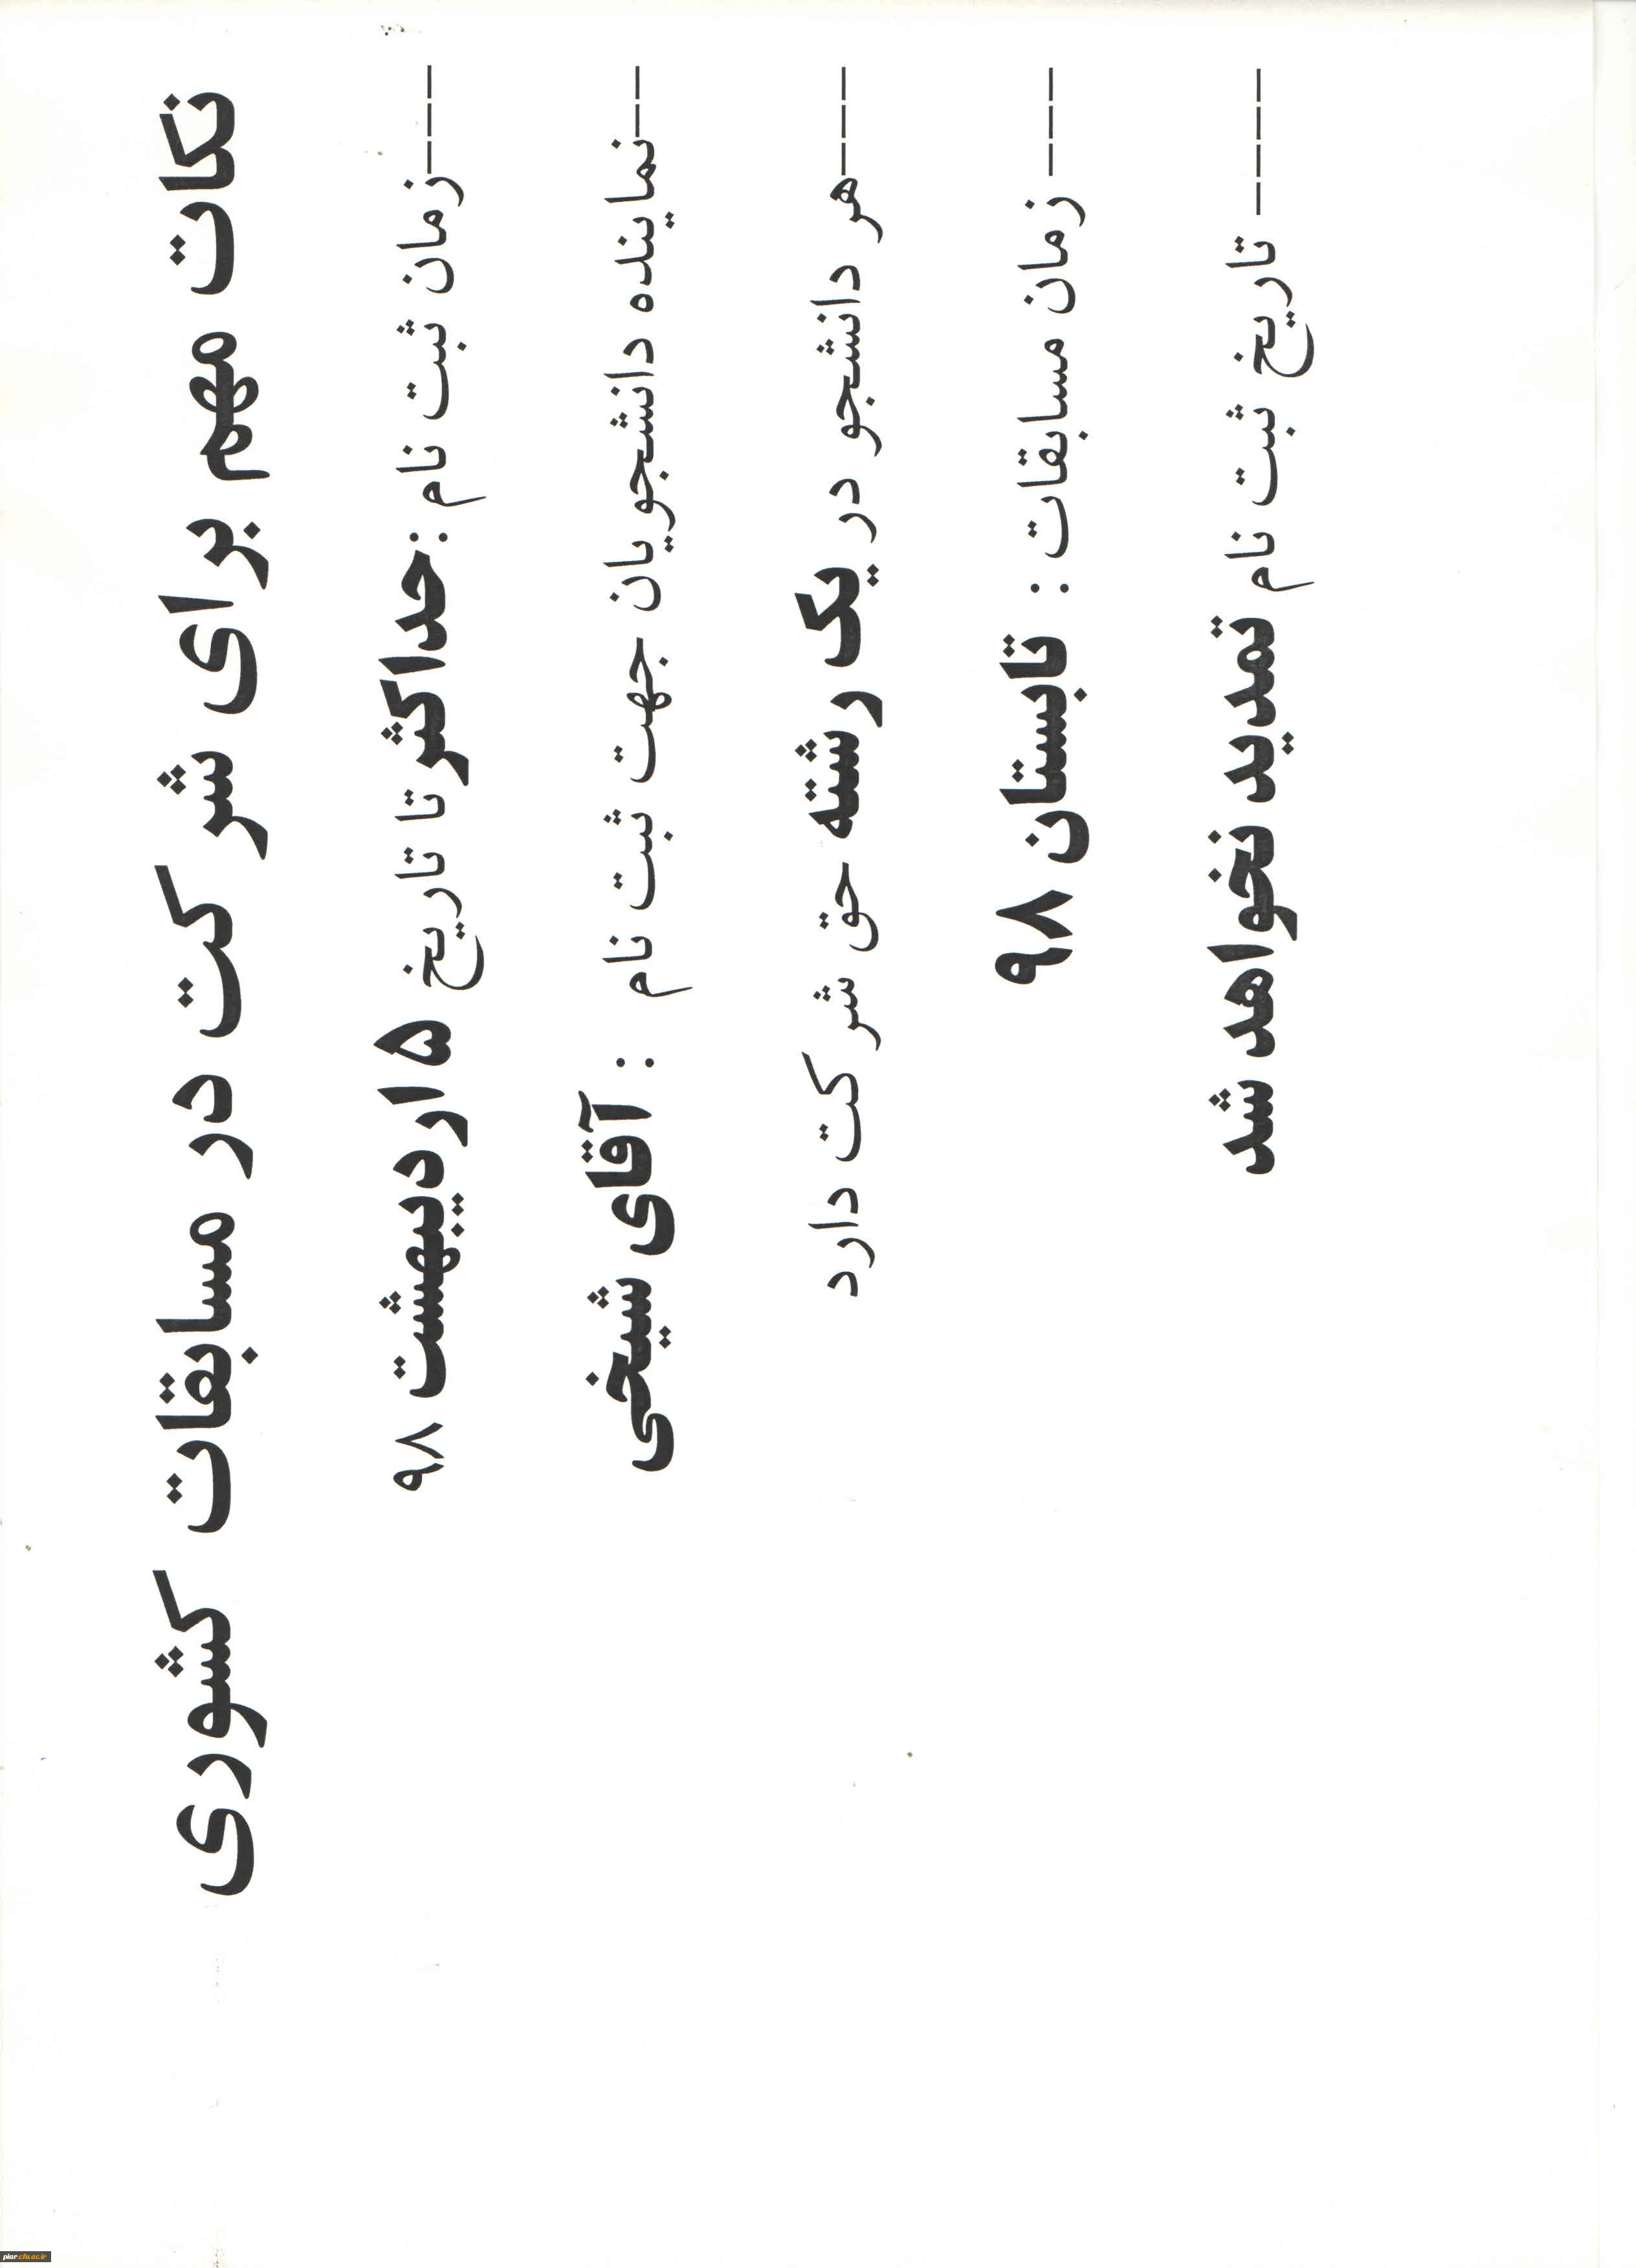 نکات مهم برای شرکت در مسابقات کشوری
---زمان ثبت نام :حداکثر تا تاریخ ۵ اردیبهشت ۹۸
--نماینده دانشجویان جهت ثبت نام : آقای شیخی
---هر دانشجو در یک رشته حق شرکت دارد
--- زمان مسابقات : تابستان ۹۸
---- تاریخ ثبت نام تمدید نخواهد شد
piar.cfu.ac.ir